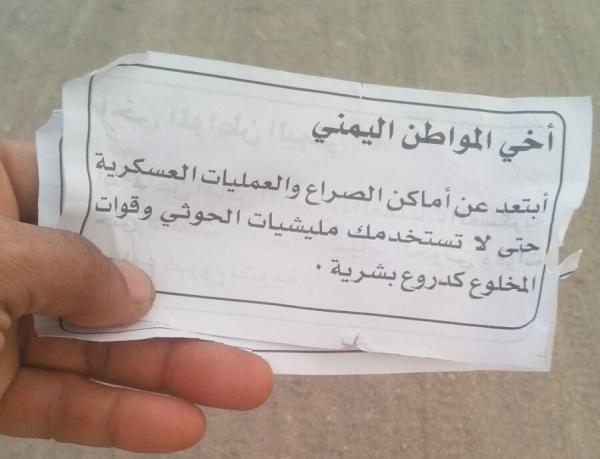 أخي المواطن اليمني
أبتعد عن أماكن الصراع والعمليات العسكرية
حتى لا تستخدمك مليشيات الحوثي وقوات
المخلوع كدروع بشرية .